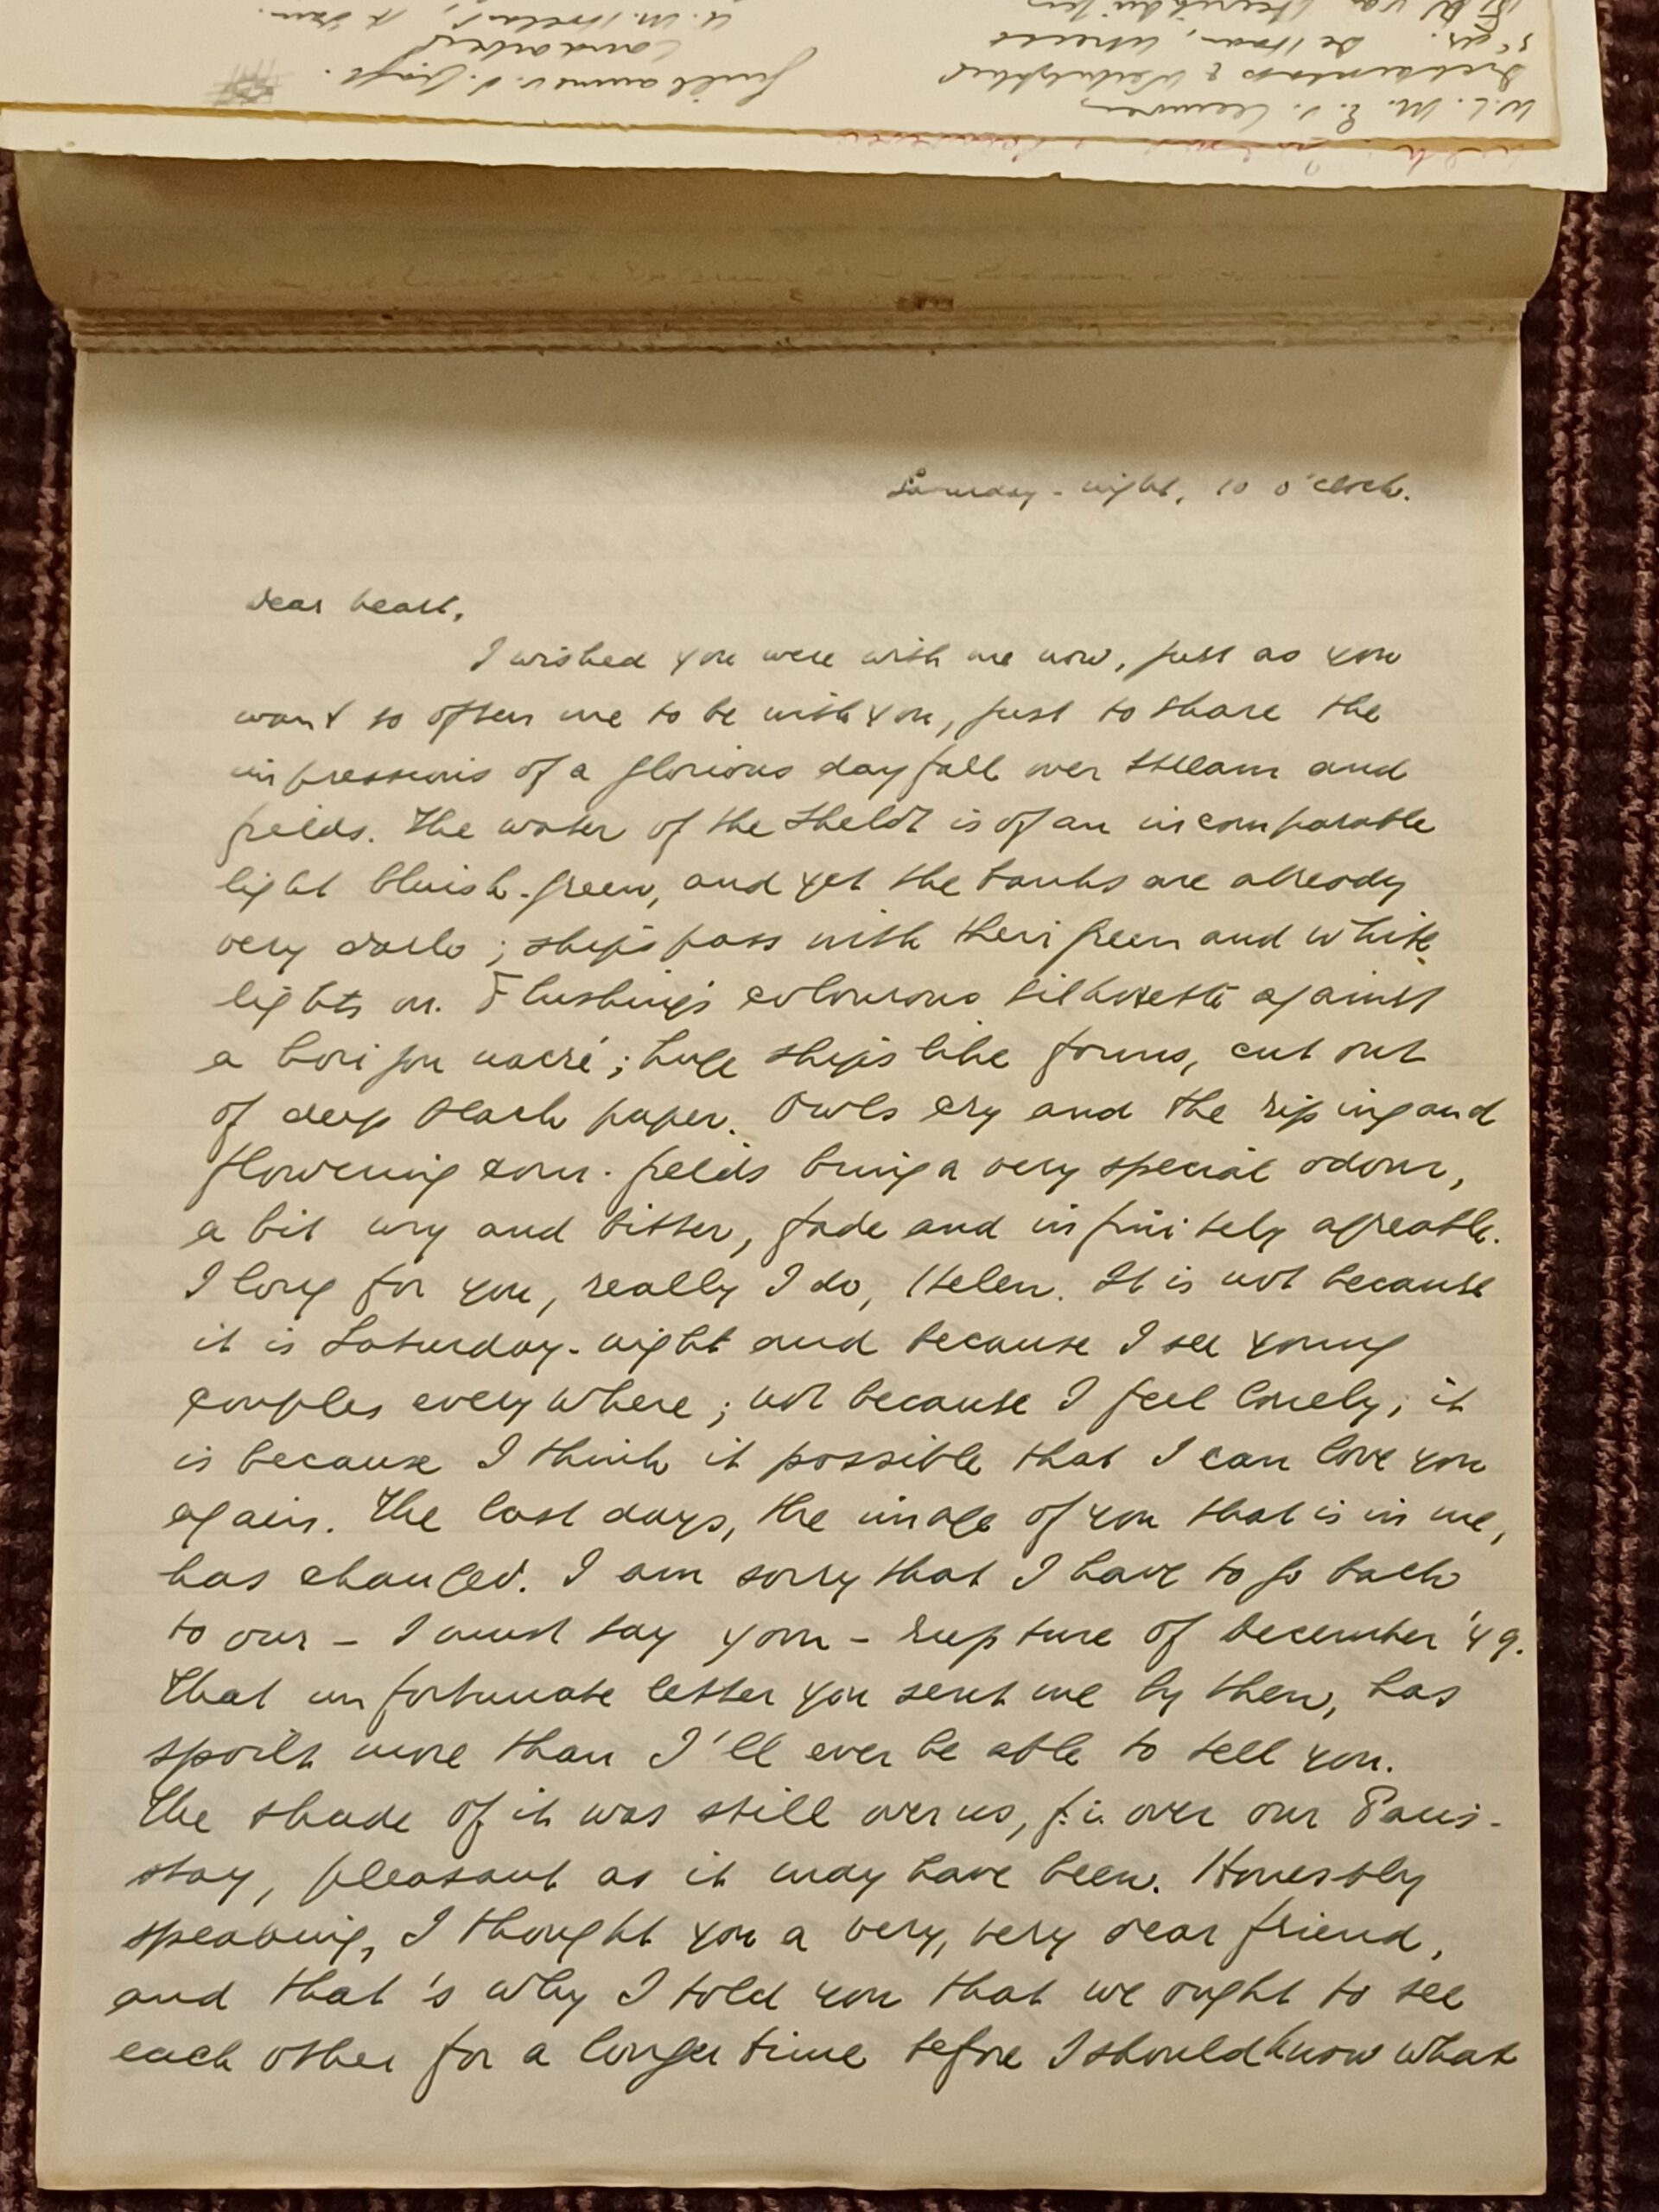 Saturday - night, 10 o'clock.
Dear heart,
I wished you were with me now, just as you
want so often me to be with you, just to share the
impressions of a glorious dayfall over stream and
fields. The water of the Sheldt is of an incomparable
light bluish-green, and yet the banks are already
very dark; ships pass with their green and white
lights on. Flushing's colourous silhouette against
a horizon nacré; huge ships like forms, cut out
of deep black paper. Owls cry and the riping and
flowering corn-fields bring a very special odour,
a bit wry and bitter, fade and infinitely agreable.
I long for you, really I do, Helen. It is not because
it is Saturday-night and because I see young
couples everywhere; not because I feel lonely; it
is because I think it possible that I can love you
again. The last days, the image of you that is in me,
has changed. I am sorry that I have to go back
to our - I must say your - rupture of December '49.
That unfortunate letter you sent me by then, has
spoilt more than I'll ever be able to tell you.
The shade of it was still over us, f.i. over our Paris-
stay, pleasant as it may have been. Honestly
speaking, I thought you a very, very dear friend,
and that's why I told you that we ought to see
each other for a longer time before I should know what